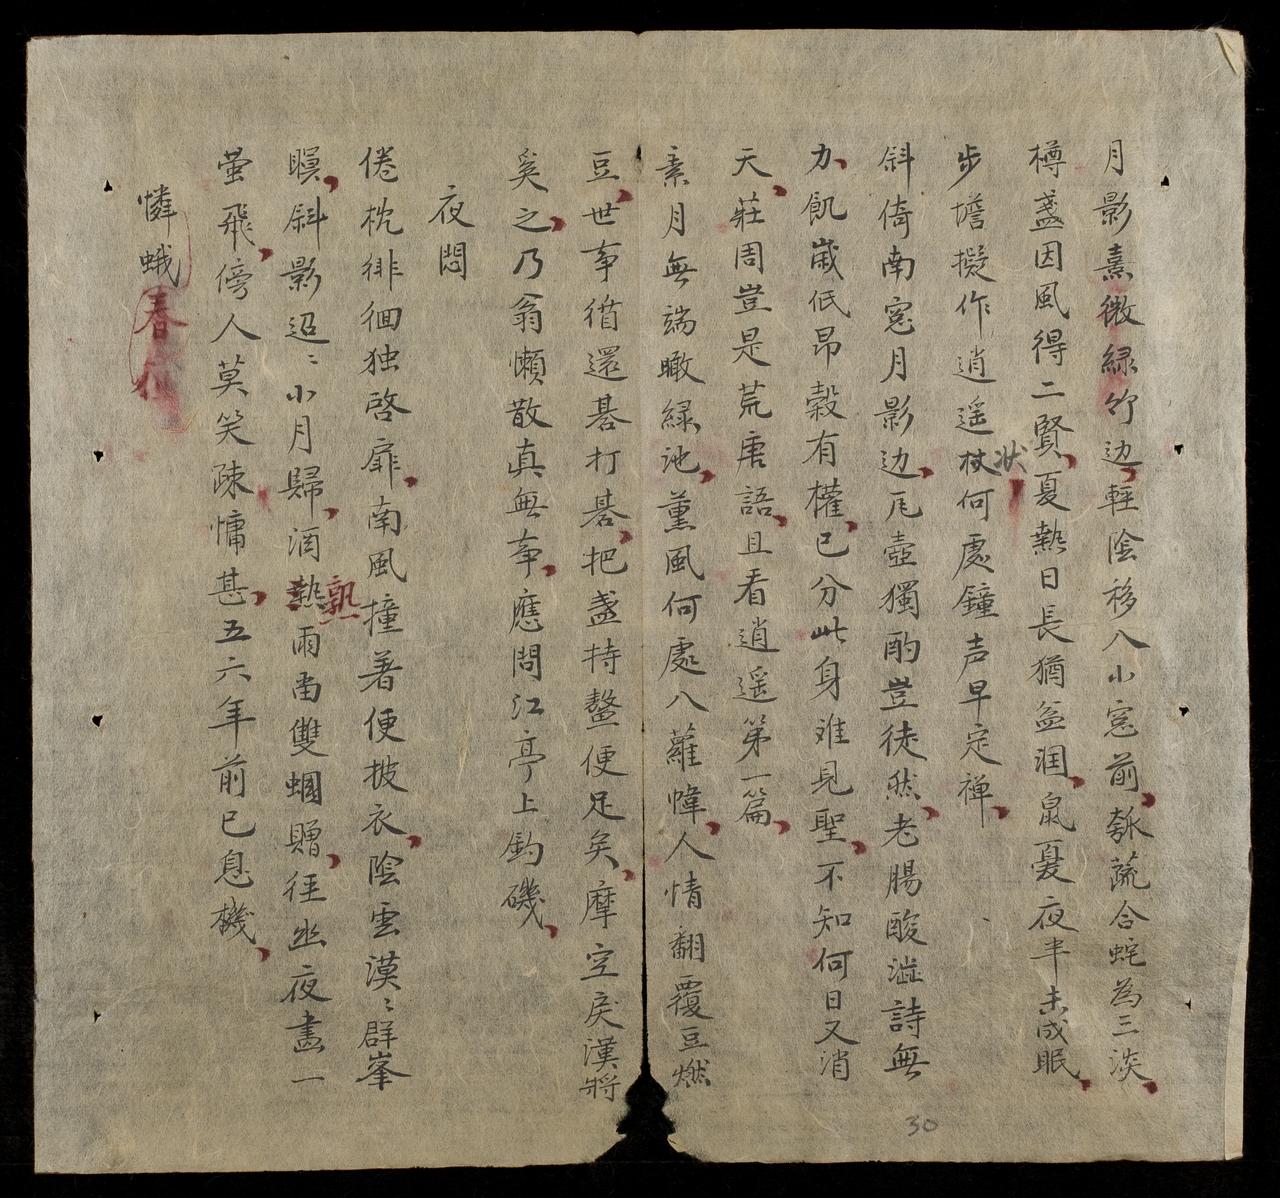 月影熹微緑竹边輕陰移入小窓前瓠蔬合蛇為三淡
樽盞因風得二賢夏熱日長猶盆润鼠憂夜半未成眠
步墖擬作逍遥杖何處鐘声早定禅
状
斜倚南窓月影边瓦壺獨酌豈徒然老腸酸澁詩無
力飢歲低昂穀有權已分此身难見聖不知何日又消
天莊周豈是荒唐語且看逍遥第一篇
素月無端瞰緑池薫風何處入蘿幃人情翻覆豆燃
豆世事循還碁打碁把盞持螯便足矣摩空戾漢將
奚之乃翁懶散真無事應問江亭上釣磯
夜悶
倦枕徘徊独啓扉南風撞著便披衣陰雲漠〻群峯
暝斜影迢〻小月歸酒熱雨畨雙蟈贈徑幽夜畵一
熟
萤飛傍人莫笑疎慵甚五六年前已息機
憐蛾春
30